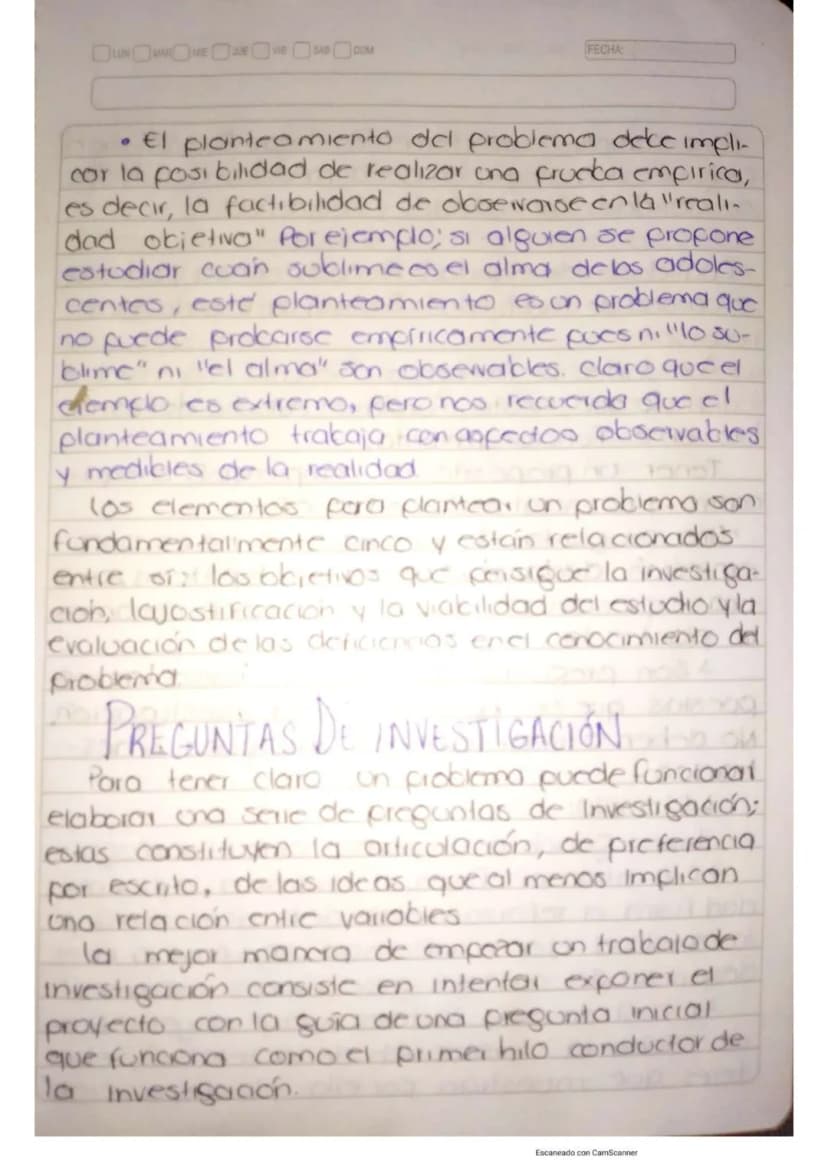 LUN MAR MIE JUE VIE SAB DOM FECHA:
• El planteamiento del problema debe impli-
car la posibilidad de realizar una prueba empirica,
es decir, la factibilidad de observarse en la "reali-
dad objetiva" Por ejemplo; si alguien se propone
estudiar cuán sublime es el alma de los adoles-
centes, esté planteamiento es un problema que
no puede probarse empíricamente pues ni "lo su-
blime" ni "el alma" son observables. Claro que el
ejemplo es extremo, pero nos recuerda que el
planteamiento trabaja con aspectos observables
y medibles de la realidad.
los elementos para plantear un problema son
fundamentalmente cinco y están relacionados
entre sí: los objetivos que persigue la investiga-
ción, la justificación y la viabilidad del estudio y la
evaluación de las deficiencias en el conocimiento del
problema.
PREGUNTAS DE INVESTIGACIÓN
Para tener claro un problema puede funcionar
elaborar una serie de preguntas de Investigación;
estas constituyen la articulación, de preferencia
por escrito, de las ideas que al menos implican
una relación entre variables
la mejor manera de empezar un trabajo de
investigación consiste en intentar exponer el
proyecto con la guía de una pregunta inicial
que funciona como el primer hilo conductor de
la investigación.
Escaneado con CamScanner